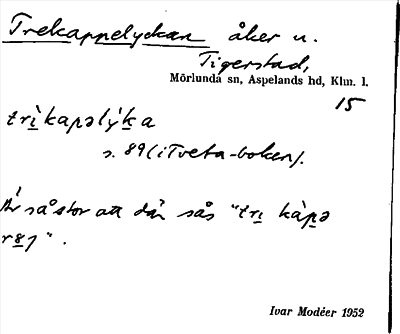 Trekappelyckan åker u.
Tigerstad,
Mörlunda sn, Aspelands hd, Klm. l.
15
trìkapəlýka
s. 89 (i Tveta-boken).
Är så stor att där sås "trı kàpə
r8j".
Ivar Modéer 1952